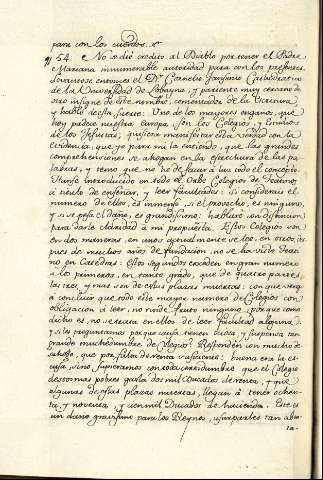 para con los cuerdos.
54. No se dió credito al Diablo por tener el Padre
Mariana innumerable autoridad para con los presentes.
Levantose entonces el Dr. Cornelio Jansenio Cathedratico
de la Universidad de Lobayna, y pariente muy cercano de
otro insigne de este nombre, comentador de la Escritura,
y habló de esta suerte: Uno de los mayores engaños, que
hoy padece nuestra Europa, son los Colegios, y Estudios
de los Jesuitas, quisiera manifestar esta verdad con la
evidencia, que yo para mi la entiendo, que las grandes
comprehensiones se ahogan en la estrechura de las pa-
labras, y temo que no he de sacar à luz todo el concepto.
Hanse introducido en todo el Orbe Colegios de Teatinos
à titulo de enseñar, y leer facultades. Si considerais el
numero de ellos, es inmenso, si el provecho, es ninguno,
y si se pesa el daño, es grandisimo: hablaré con distincion
para darle claridad à mi propuesta. Estos Colegios son
en dos maneras, en unos actualmente se lee, en otros, des-
pues de muchos años de fundacion, no se ha visto Teati-
no en Cathedra: Estos segundos exceden en gran numero
à los primeros, en tanto grado, que de quatro partes,
las tres, y mas son de estas plazas muertas: con que vengo
à concluir que todo este mayor numero de Colegios con
obligacion à leer, no rinde fruto ninguno, porque como
dicho es, no se trata en ellos de leer facultad alguna:
y si les preguntamos por que causa tienen ociosa, y suspensa tan
grande muchedumbre de Colegios? Responden con mucho de-
sahogo, que por falta de renta suficiente: buena era la es-
cusa, si no supieramos con toda certidumbre que el Colegio
de estos mas pobres gasta dos mil Ducados de renta, y que
algunas de estas plazas muertas, llegan à tener ochen-
ta, y noventa, y cien mil Ducados de hacienda. Este es
un daño gravisimo para los Reynos, usurparles tan abier-
ta-